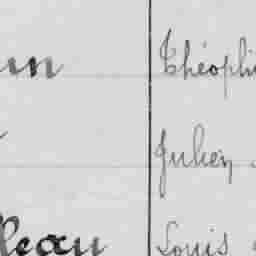 un Théophi
Julien
leau Louis